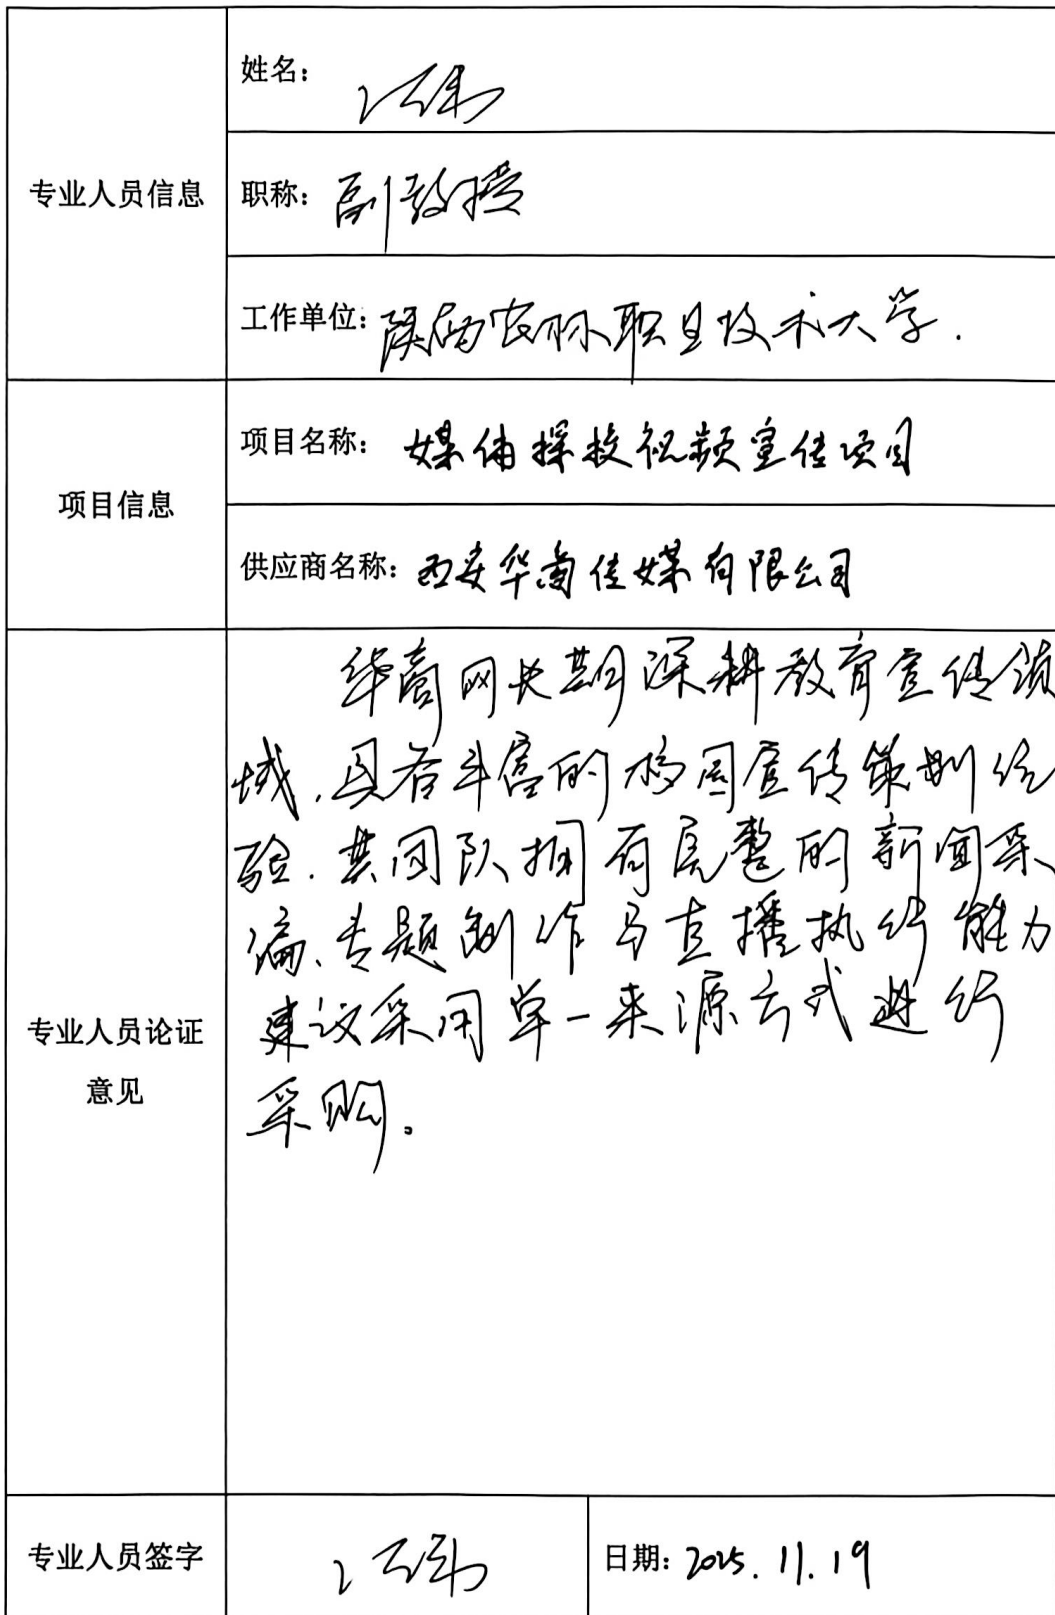 姓名：
专业人员信息
职称：副教授
工作单位：陕西农林职业技术大学.
项目信息
项目名称：媒体探校视频宣传项目
供应商名称：西安华商传媒有限公司
华商网长期深耕教育宣传领
域,具有丰富的校园宣传策划经
验.其团队拥有完整的新闻采
编、专题制作与直播执行能力
建议采用单一来源方式进行
采购。
专业人员论证
意见
专业人员签字
日期：2025.11.19